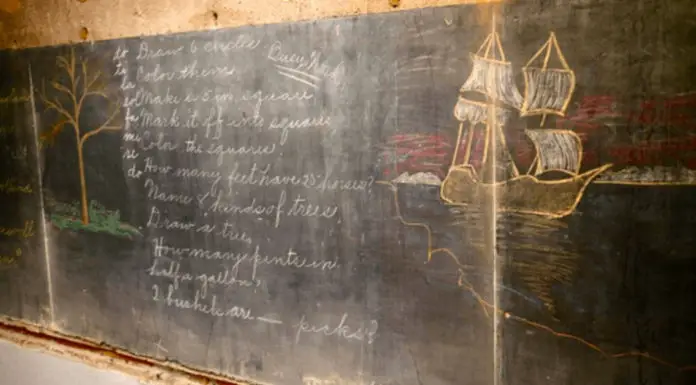 do Draw 6 circles Busy Work
ti Color them.
la
sol Make a 5 in. square
fa Mark it off into squares
mi Color the squares.
re
do How many feet have horses?
Name kinds of trees
Draw a tree
How many pints in
half a gallon?
2 bushels are — pecks?